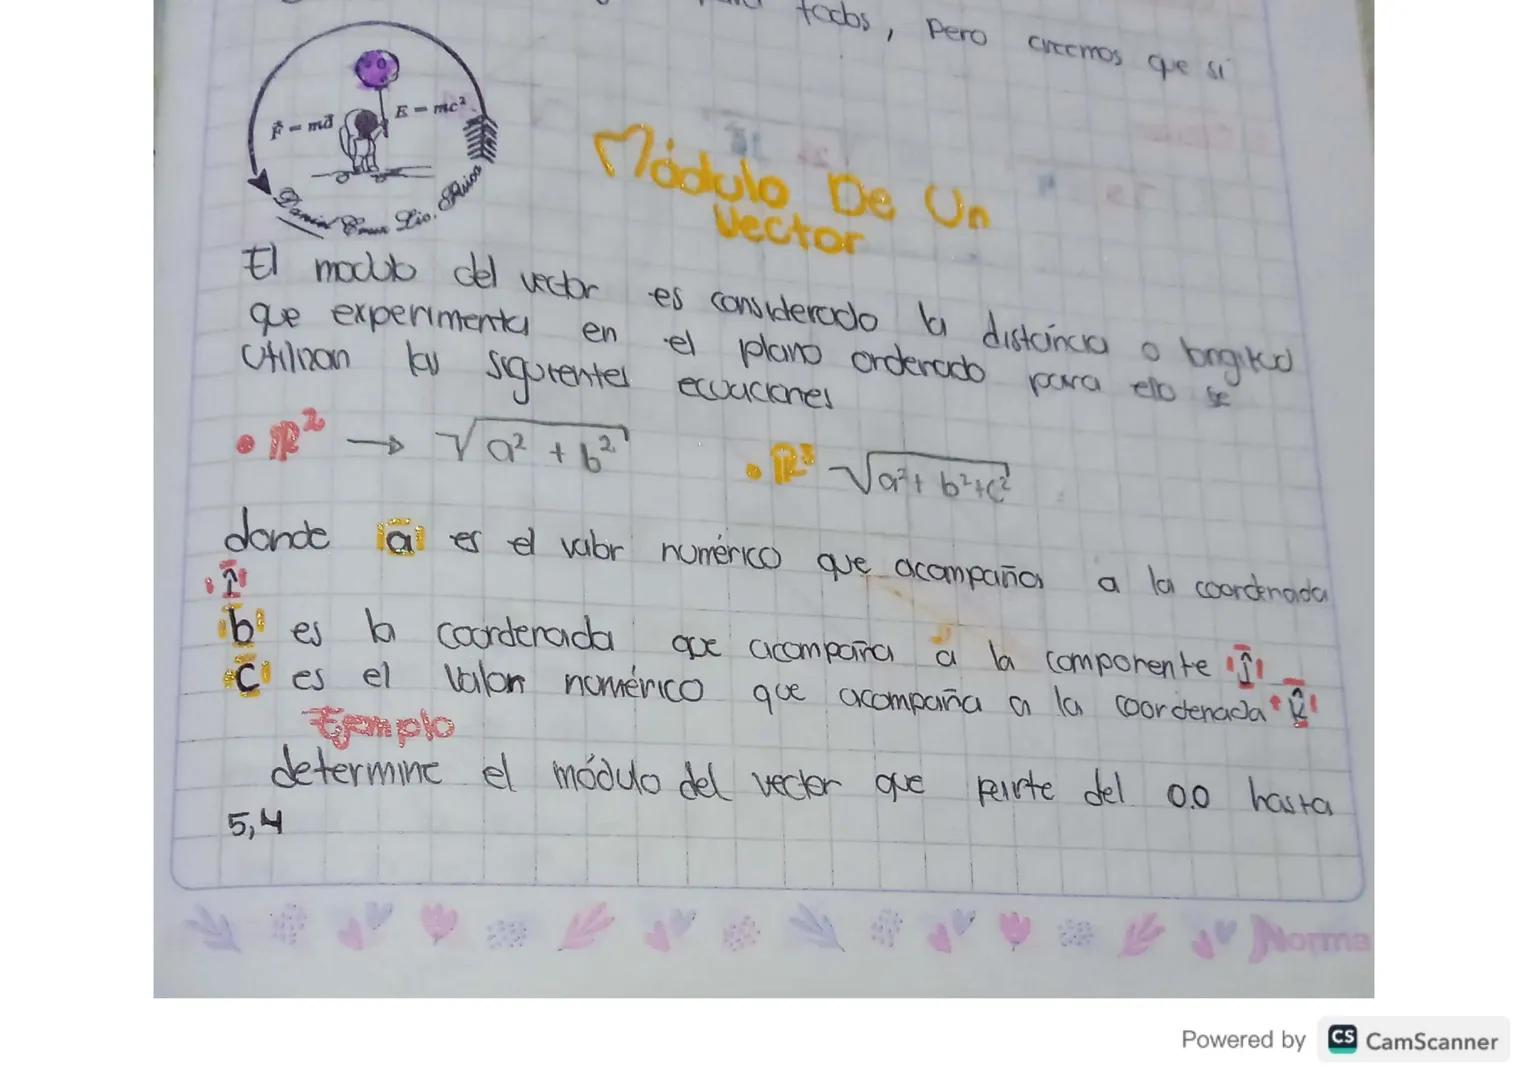 todos, pero creemos que si
F = ma
E = mc²
Lic.
Módulo De Un
Vector
El modulo del vector es considerado la distáncia o longitud
que experimenta en el plano ordenado para ello se
utilizan las siguientes ecuaciones
• R² → √a² + b²
• R³ √a² + b² + c²
donde a es el valor numérico que acompaña a la coordenada
î
b es la coordenada que acompaña a la componente ĵ
c es el valor numérico que acompaña a la coordenada k̂
Ejemplo
determine el módulo del vector que parte del 0.0 hasta
5,4
Norma
Powered by CS CamScanner